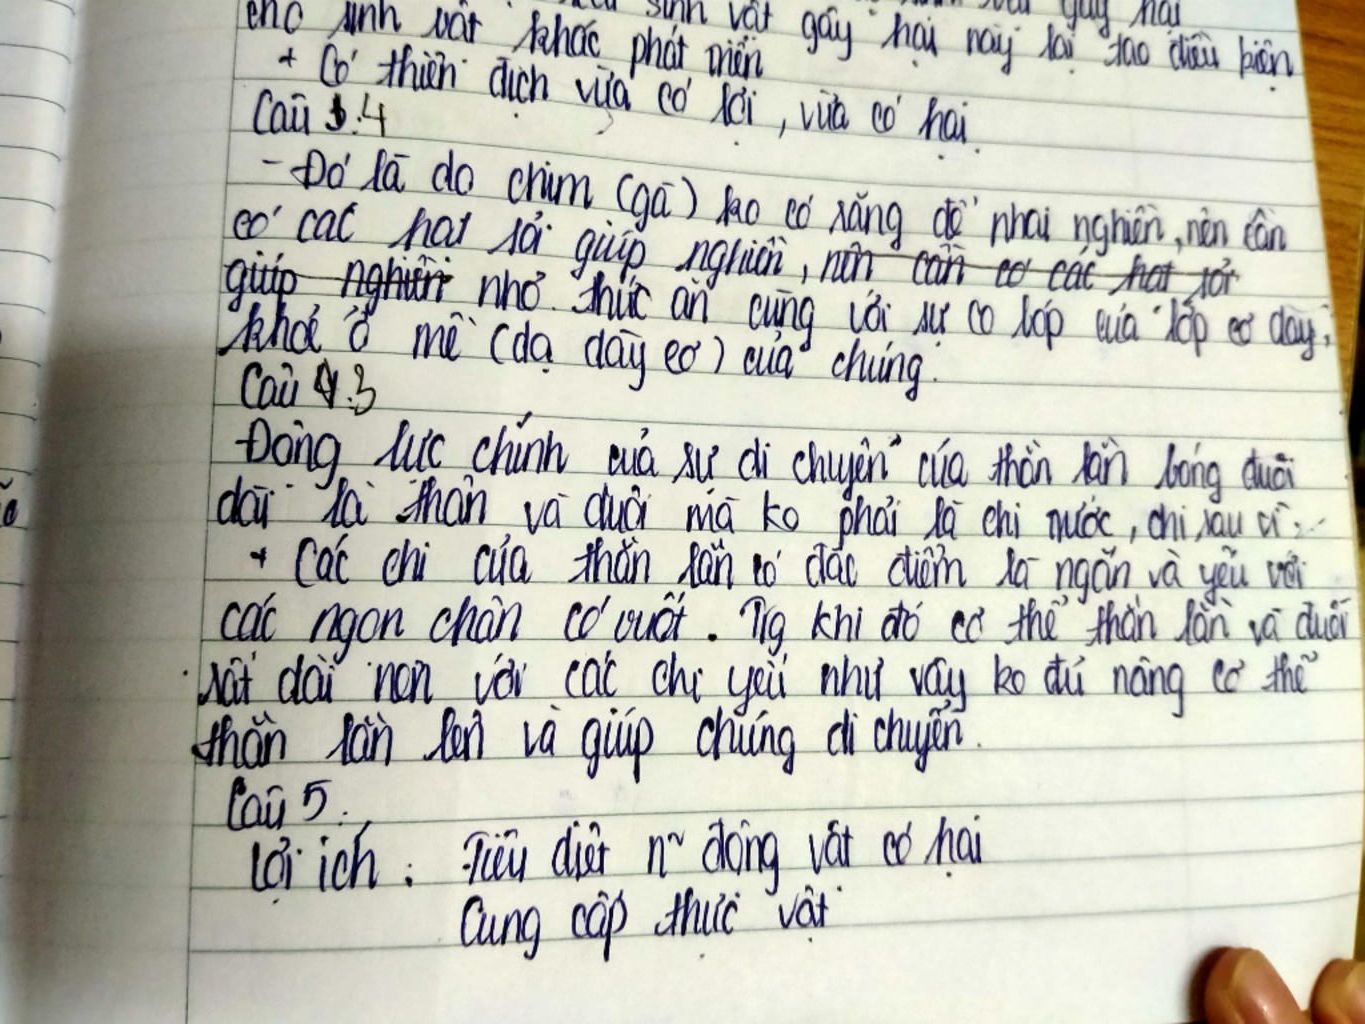 cho sinh vật khác phát triển sinh vật gây hại này lại tạo điều kiện
+ Có thiên địch vừa có lợi, vừa có hại.
Câu 4
- Đó là do chim (gà) ko có răng để nhai nghiền, nên cần
có các hạt sỏi giúp nghiền, nên cần có các hạt sỏi
giúp nghiền nhỏ thức ăn cùng với sự co bóp của lớp cơ dày,
khoẻ ở mề (dạ dày cơ) của chúng.
Câu 3
Động lực chính của sự di chuyển của thằn lằn bóng đuôi
dài là thân và đuôi mà ko phải là chi trước, chi sau vì:
+ Các chi của thằn lằn có đặc điểm là ngắn và yếu với
các ngón chân có vuốt. Trg khi đó cơ thể thằn lằn và đuôi
rất dài nên với các chi yếu như vậy ko đủ nâng cơ thể
thằn lằn lên và giúp chúng di chuyển.
Câu 5.
Lợi ích: Tiêu diệt n~ động vật có hại
Cung cấp thực vật